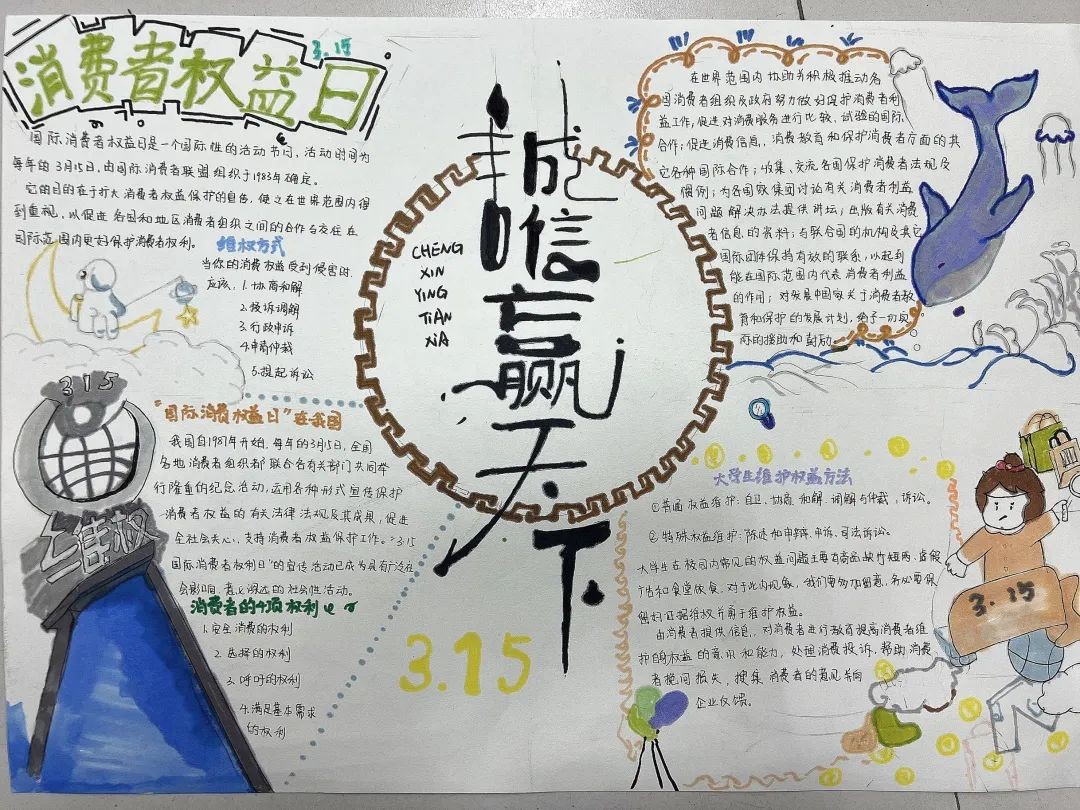 消费者权益日
3.15
国际消费者权益日是一个国际性的活动节日,活动时间为
每年的3月15日,由国际消费者联盟组织于1983年确定。
它的目的在于扩大消费者权益保护的宣传,使之在世界范围内得
到重视,以促进各国和地区消费者组织之间的合作与交往在
国际范围内更好保护消费者权利。
维权方式
当你的消费权益受到侵害时,
应该:1.协商和解
2.投诉调解
3.行政申诉
4.申请仲裁
5.提起诉讼
315
维权
"国际消费权益日"在我国
我国自1987年开始,每年的3月15日,全国
各地消费者组织都联合各有关部门共同举
行隆重的纪念活动,运用各种形式宣传保护
消费者权益的有关法律法规及其成果,促进
全社会关心、支持消费者权益保护工作。"3.15
国际消费者权利日"的宣传活动已成为具有广泛社
会影响、意义深远的社会性活动。
消费者的4项权利
1.安全消费的权利
2.选择的权利
3.呼吁的权利
4.满足基本需求
的权利
诚信赢天下
CHENG
XIN
YING
TIAN
XIA
3.15
在世界范围内协助并积极推动各
国消费者组织及政府努力做好保护消费者利
益工作,促进对消费服务进行比较、试验的国际
合作;促进消费信息、消费教育和保护消费者方面的其
它各种国际合作;收集、交流各国保护消费者法规及
惯例;为各国家集团讨论有关消费者利益
问题解决办法提供讲坛;出版有关消费
者信息的资料;与联合国的机构及其它
国际团体保持有效的联系,以起到
能在国际范围内代表消费者利益
的作用;对发展中国家关于消费者教
育和保护的发展计划,给予一切实
际的援助和鼓励
大学生维护权益方法
①普通权益维护:自卫、协商和解、调解与仲裁,诉讼。
②特殊权益维护:陈述和申辩、申诉、司法诉讼。
大学生在校园内常见的权益问题主要有商品缺斤短两、虚假
广告和食堂饮食,对于此内现象,我们要多加留意,务必要保
留好证据维权并勇于维护权益。
由消费者提供信息,对消费者进行教育提高消费者维
护自身权益的意识和能力,处理消费投诉,帮助消费
者挽回损失,搜集消费者的意见并向
企业反馈。
3.15